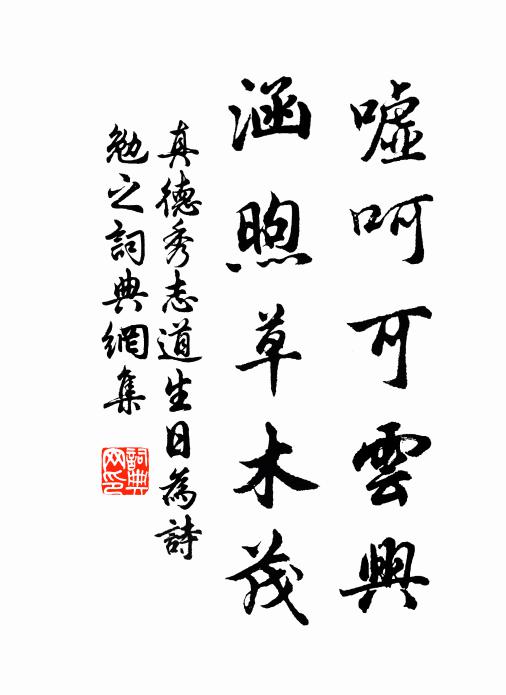 嘘呵可雲興
涵煦草木茂
真德秀志道生日為詩
勉之詞典網集
詞典網印